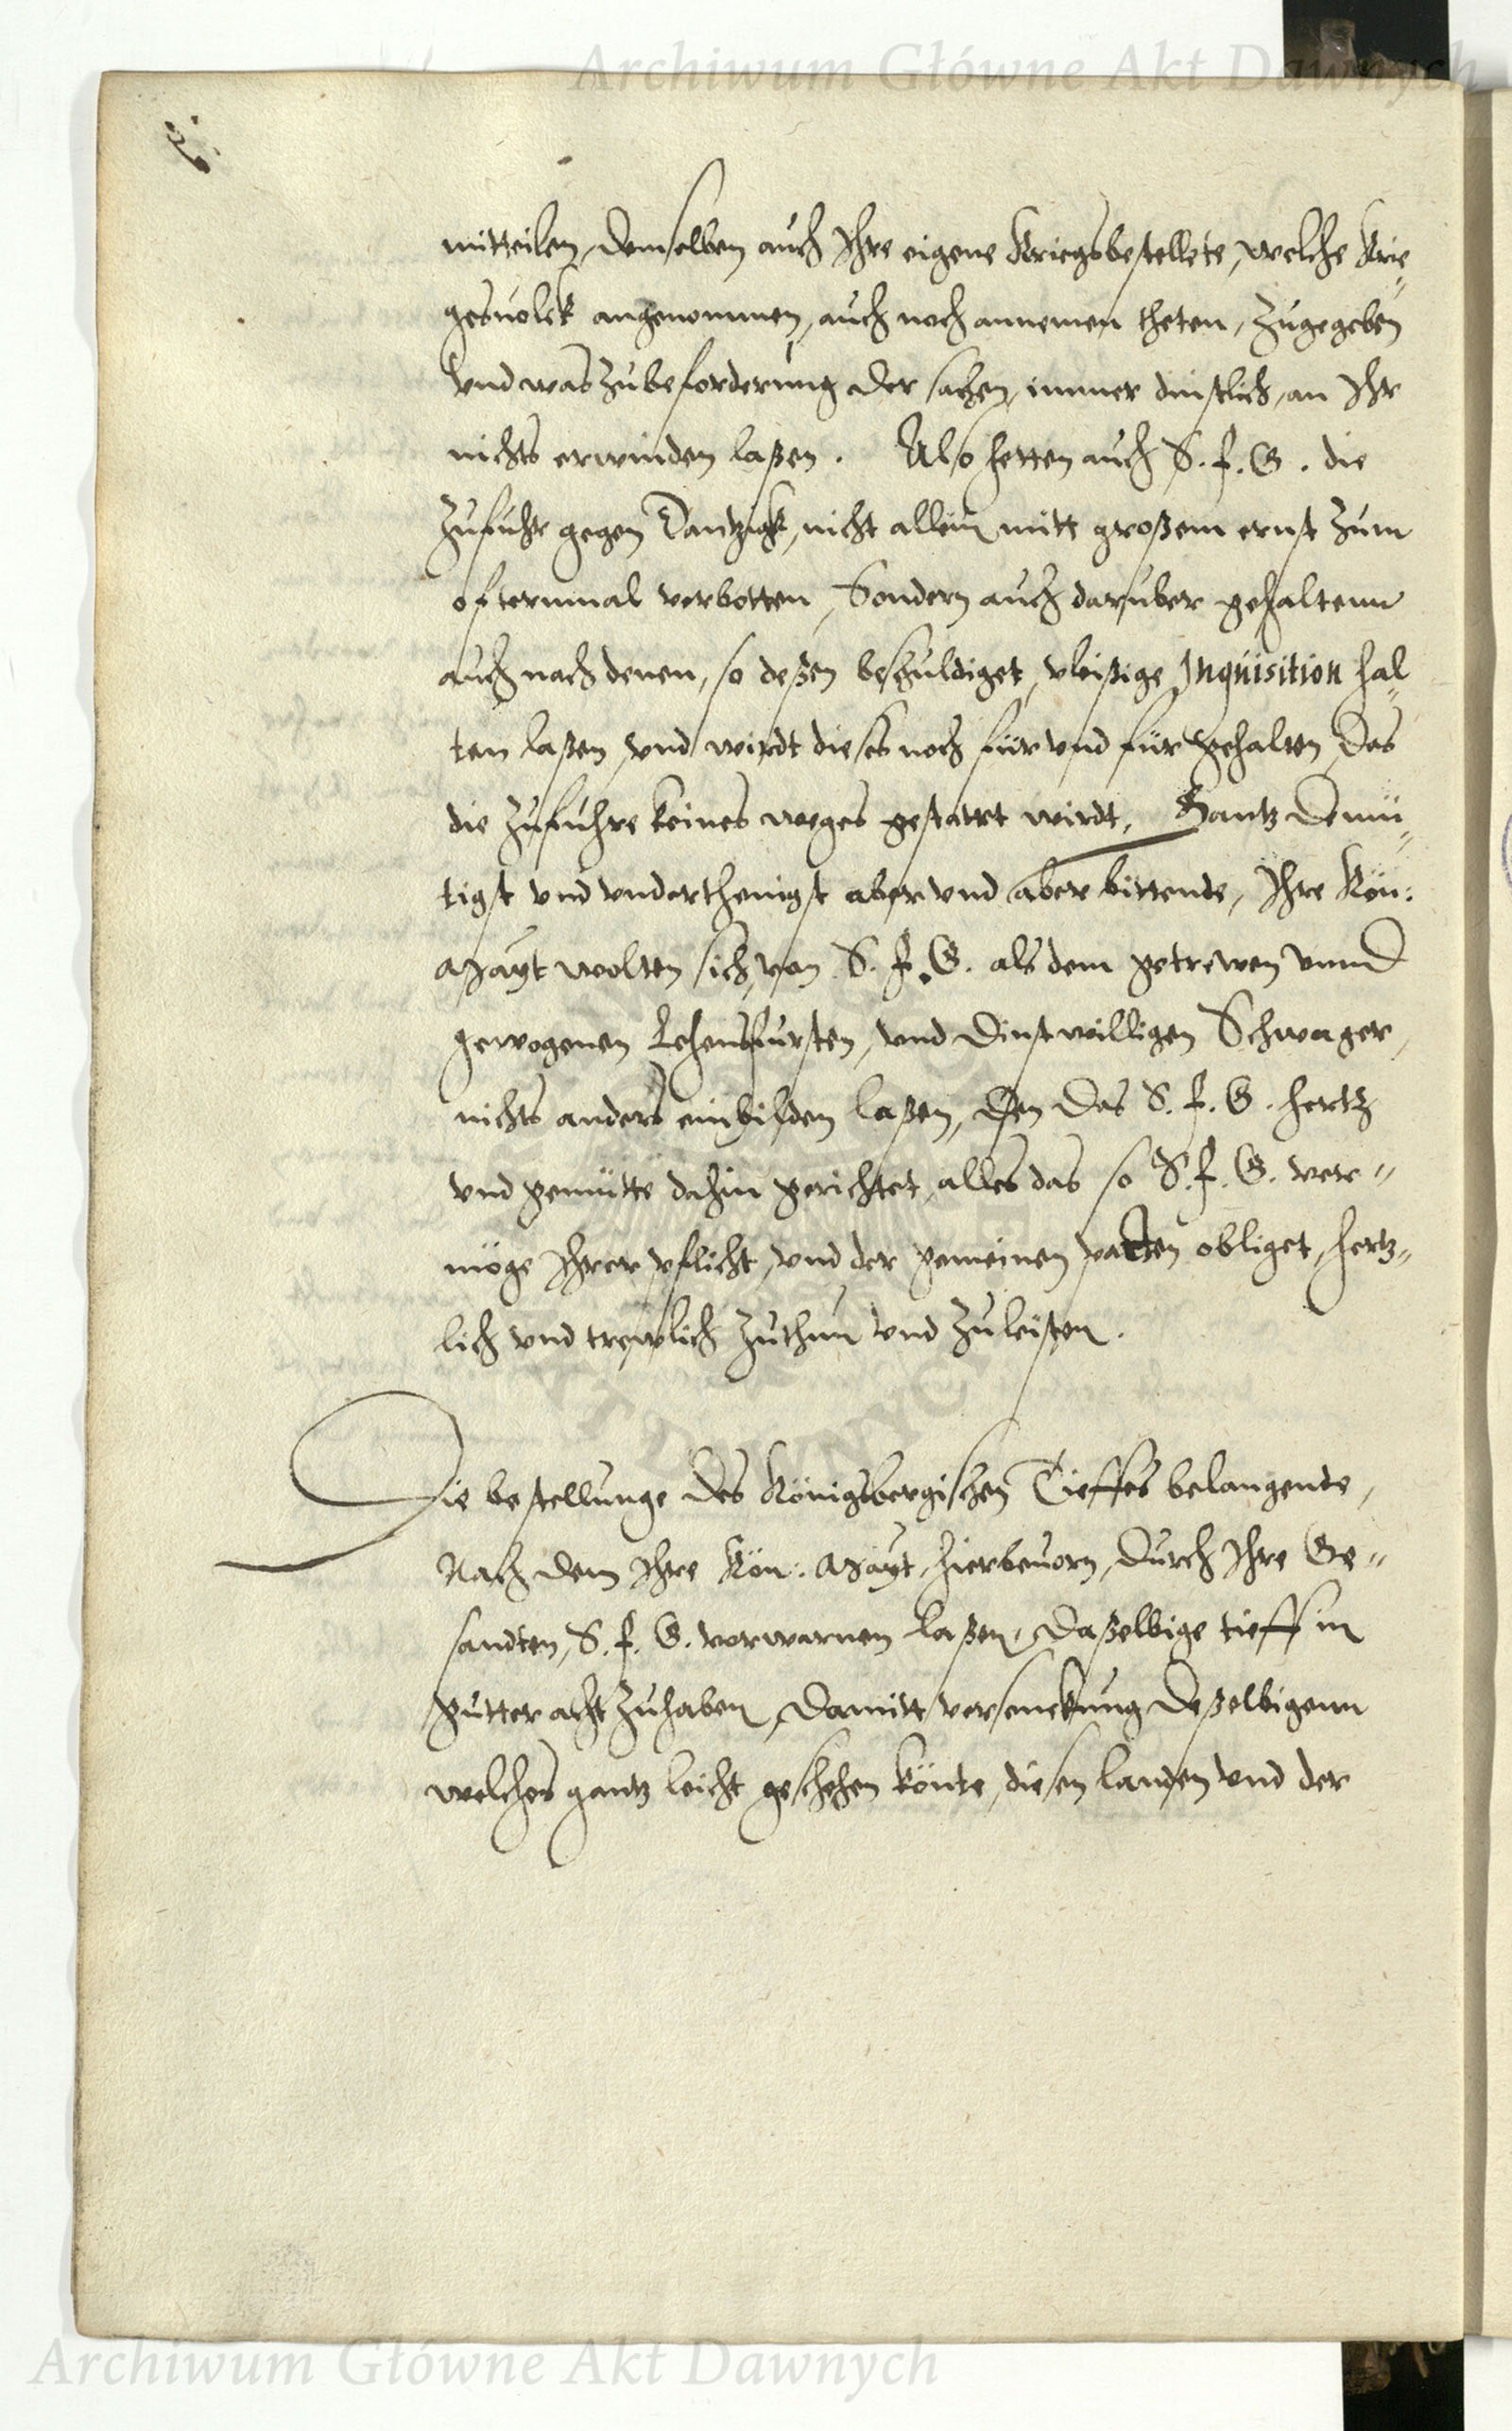 Archiwum Główne Akt Dawnych
mitteilen, demselben auch Ihre eigene Kriegsbestellete, welche Krie„
gesuolck angenommen, auch noch annemen theten, zugegeben
vnd was zubeforderung der sachen, immer dinstlich, an Ihr
nichts erwinden laßen. Also hetten auch S. f. G. die
Zufuhr gegen Dantzigk, nicht allein mitt großem ernst zum
oftermal verbotten, Sondern auch daruber gehaltenn
auch nach denen, so deßen beschuldiget, vleißige Inquisition hal„
ten laßen, vnd wirdt dieses noch für vnd für gehalten, das
die Zufuhre keines weges gestattet wirdt, Gantz demü„
tigst vnd vnderthenigst aber vnd aber bittende, Ihre Kön:
Mayt wolten sich, von S. f. G. als dem getrewen vnnd
gewogenen Lehensfursten, vnd dinstwilligen Schwager,
nichts anders einbilden laßen, den das S. f. G. hertz
vnd gemütte dahin gerichtet, alles das so S. f. G. ver„
möge Ihrer pflicht, vnd der gemeinen pacten obliget, hertz„
lich vnd trewlich zuthun vnd zuleisten.
Die bestellunge des Königsbergischen Tieffes belangende,
Nach dem Ihre Kön: Mayt, hierbeuorn, durch Ihre Ge„
sandten, S. f. G. vorwarnen laßen, daßelbige tieff in
gutter acht zuhaben, damitt versenckung deßelbigenn
welches gantz leicht geschehen könte, diesen landen vnd der
Archiwum Główne Akt Dawnych